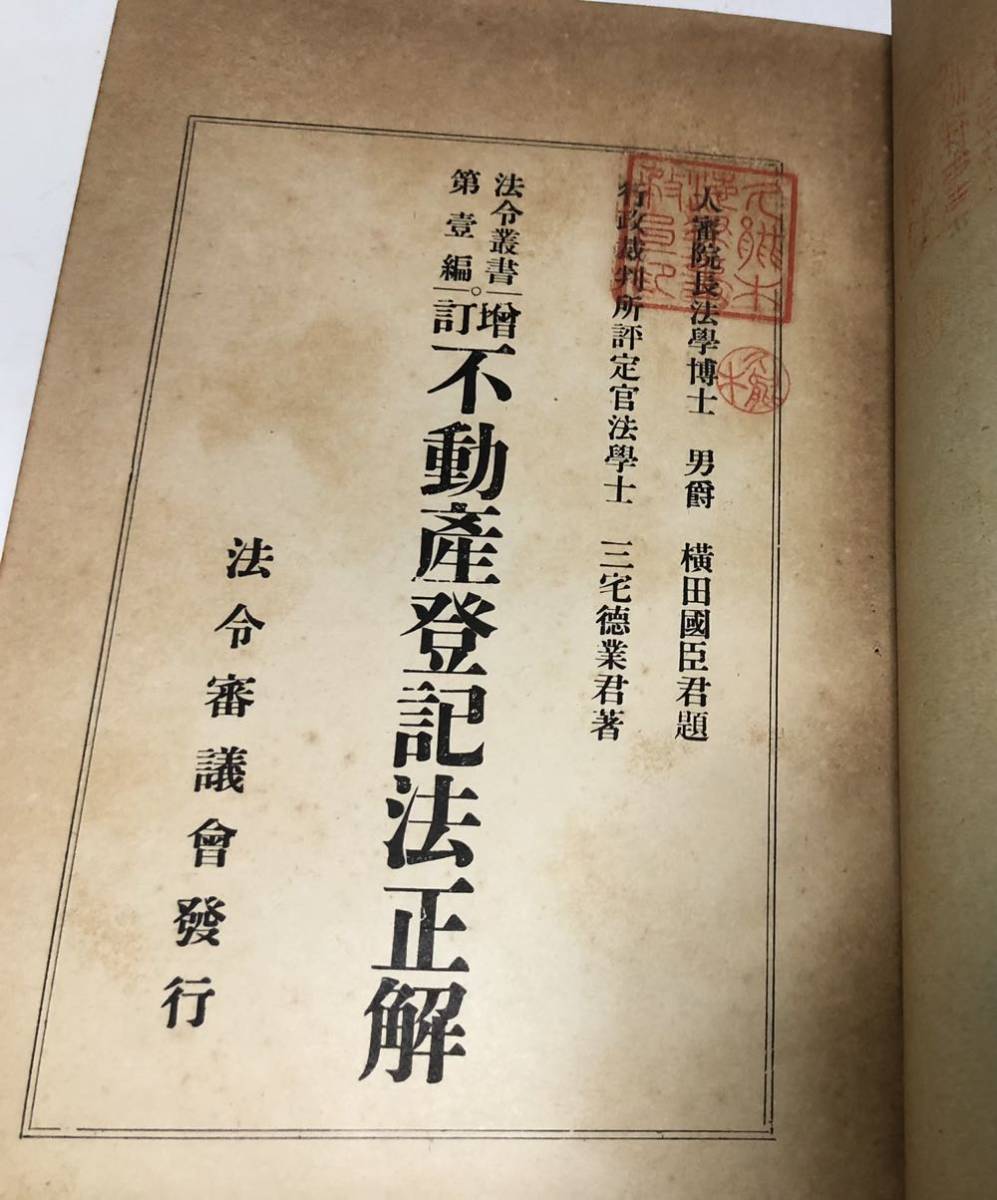 大審院長法學博士 男爵 橫田國臣君題
行政裁判所評定官法學士 三宅德業君著
法令叢書
第壹編
增訂 不動產登記法正解
法令審議會發行